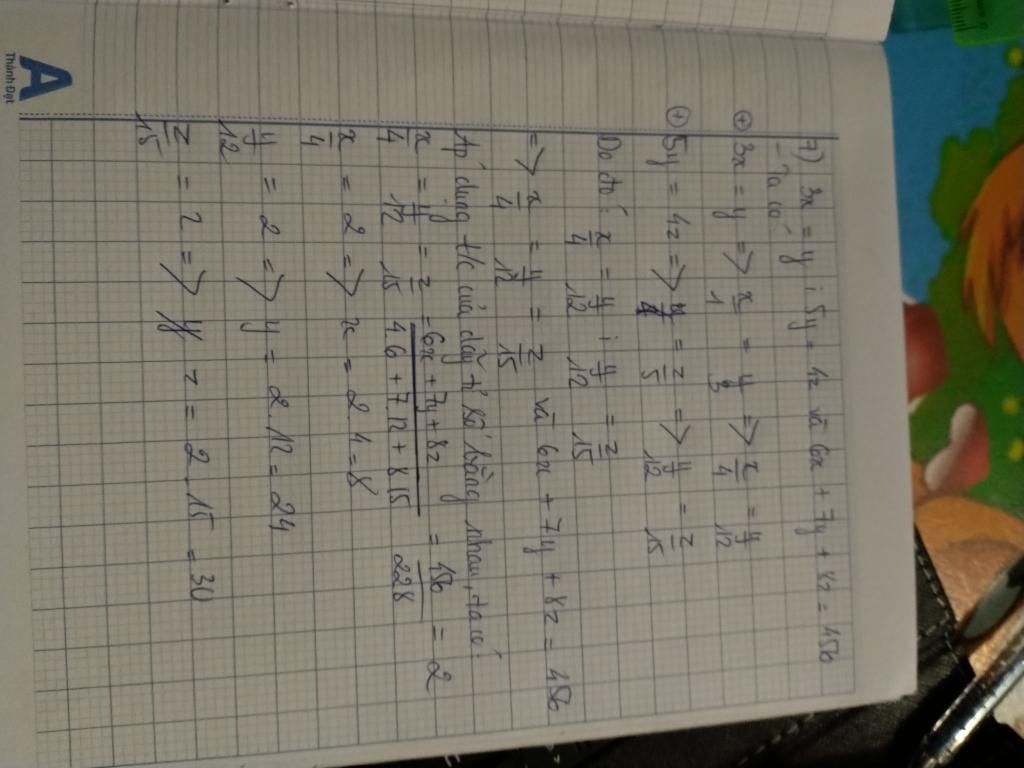 7) 3x = y ; 5y = 4z và 6x + 7y + 8z = 456
- Ta có:
+ 3x = y => x/1 = y/3 => x/4 = y/12
+ 5y = 4z => y/4 = z/5 => y/12 = z/15
Do đó: x/4 = y/12 ; y/12 = z/15
=> x/4 = y/12 = z/15 và 6x + 7y + 8z = 456
Áp dụng t/c của dãy tỉ số bằng nhau, ta có:
x/4 = y/12 = z/15 = 6x + 7y + 8z / 4.6 + 7.12 + 8.15 = 456/228 = 2
x/4 = 2 => x = 2.4 = 8
y/12 = 2 => y = 2.12 = 24
z/15 = 2 => z = 2.15 = 30
A
Thành Đạt